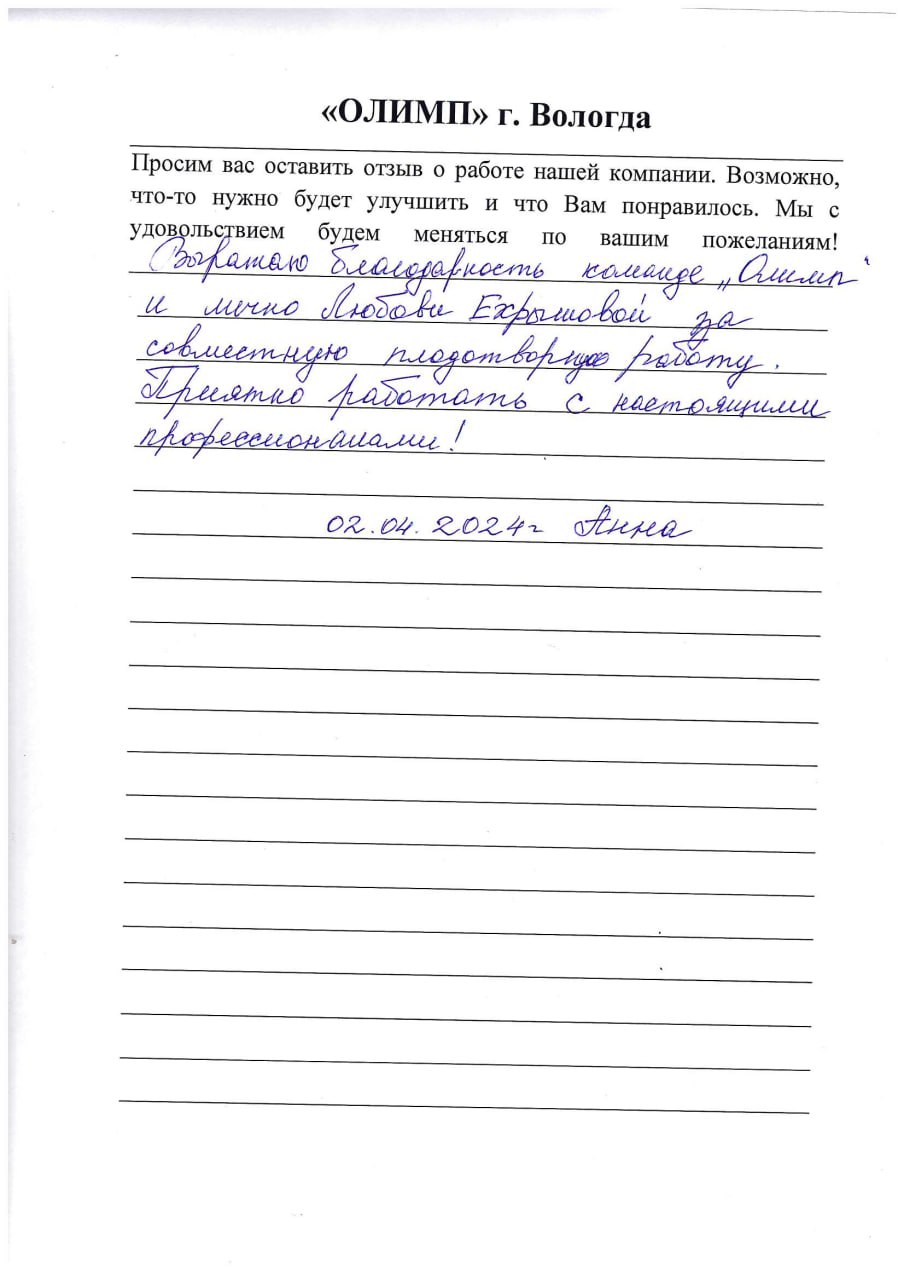 «ОЛИМП» г. Вологда
Просим вас оставить отзыв о работе нашей компании. Возможно,
что-то нужно будет улучшить и что Вам понравилось. Мы с
удовольствием будем меняться по вашим пожеланиям!
Выражаю благодарность команде „Олимп“
и лично Любови Ехрышовой за
совместную плодотворную работу.
Приятно работать с настоящими
профессионалами!
02.04.2024г Анна